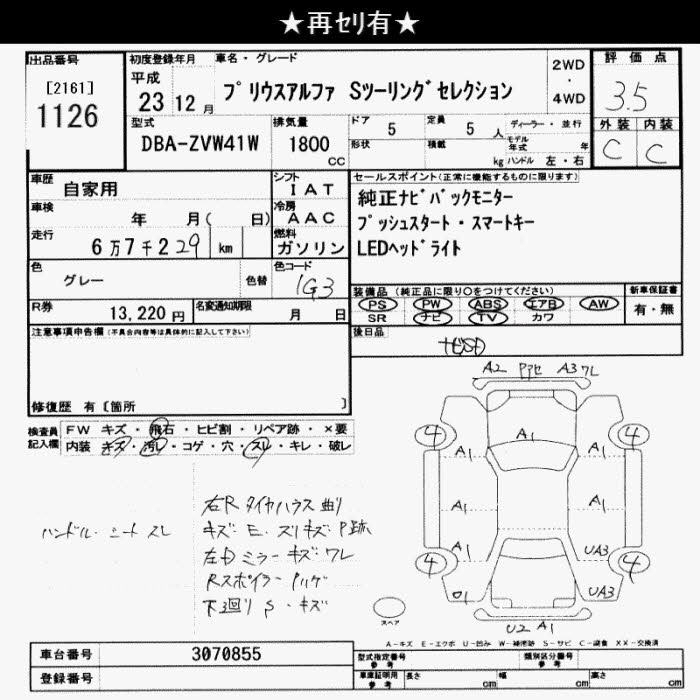 ★再セリ有★
出品番号
[2161]
1126
初度登録年月
平成
23 12 月
車名・グレード
プリウスアルファ Sツーリングセレクション
2WD
・
4WD
評価点
3.5
型式
DBA-ZVW41W
排気量
1800
cc
ドア 5
形状
定員 5 人
積載 kg
ディーラー・並行
モデル年式 年
ハンドル 左・右
外装 内装
C C
車歴
自家用
シフト
IAT
車検
年 月( 日)
冷房
AAC
走行
6万7千229 km
燃料
ガソリン
色
グレー
色替
色コード
1G3
R券
13,220 円
名変通知期限
月 日
セールスポイント(正常に機能するものに限ります)
純正ナビバックモニター
プッシュスタート・スマートキー
LEDヘッドライト
装備品(純正品に限り○をつけてください)
PS PW ABS エアB AW
SR ナビ TV カワ
新車保証書
有・無
後日品
ナビSD
注意事項申告欄(不具合内容等は具体的に記入して下さい)
修復歴 有〔箇所 〕
検査員記入欄
FW キズ・飛石・ヒビ割・リペア跡・×要
内装 キズ・汚レ・コゲ・穴・スレ・キレ・破レ
ハンドル・シートスレ
右Rタイヤハウス曲り
キズ E・スリキズ P跡
左Dミラーキズ ワレ
Rスポイラー
下回り S・キズ
A2 A3 ワレ
4 4
A1
A1 A1
A1 A1
A1 UA3
4 4
UA3
U2 A1
スペア
A-キズ E-エクボ U-凹み W-補修跡 S-サビ C-腐食 XX-交換済
車台番号
3070855
登録番号
型式指定番号
参考
類別区分番号
参考
車庫証明用
参考
長さ cm
幅 cm
高さ cm